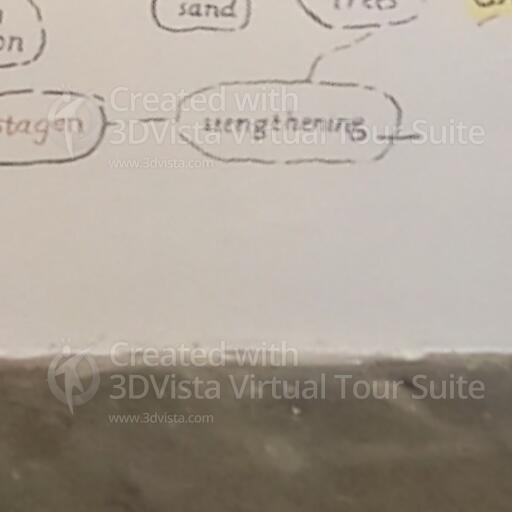 on
sand
Trees
stagen
strengthening
Created with
3DVista Virtual Tour Suite
www.3dvista.com
Created with
3DVista Virtual Tour Suite
www.3dvista.com